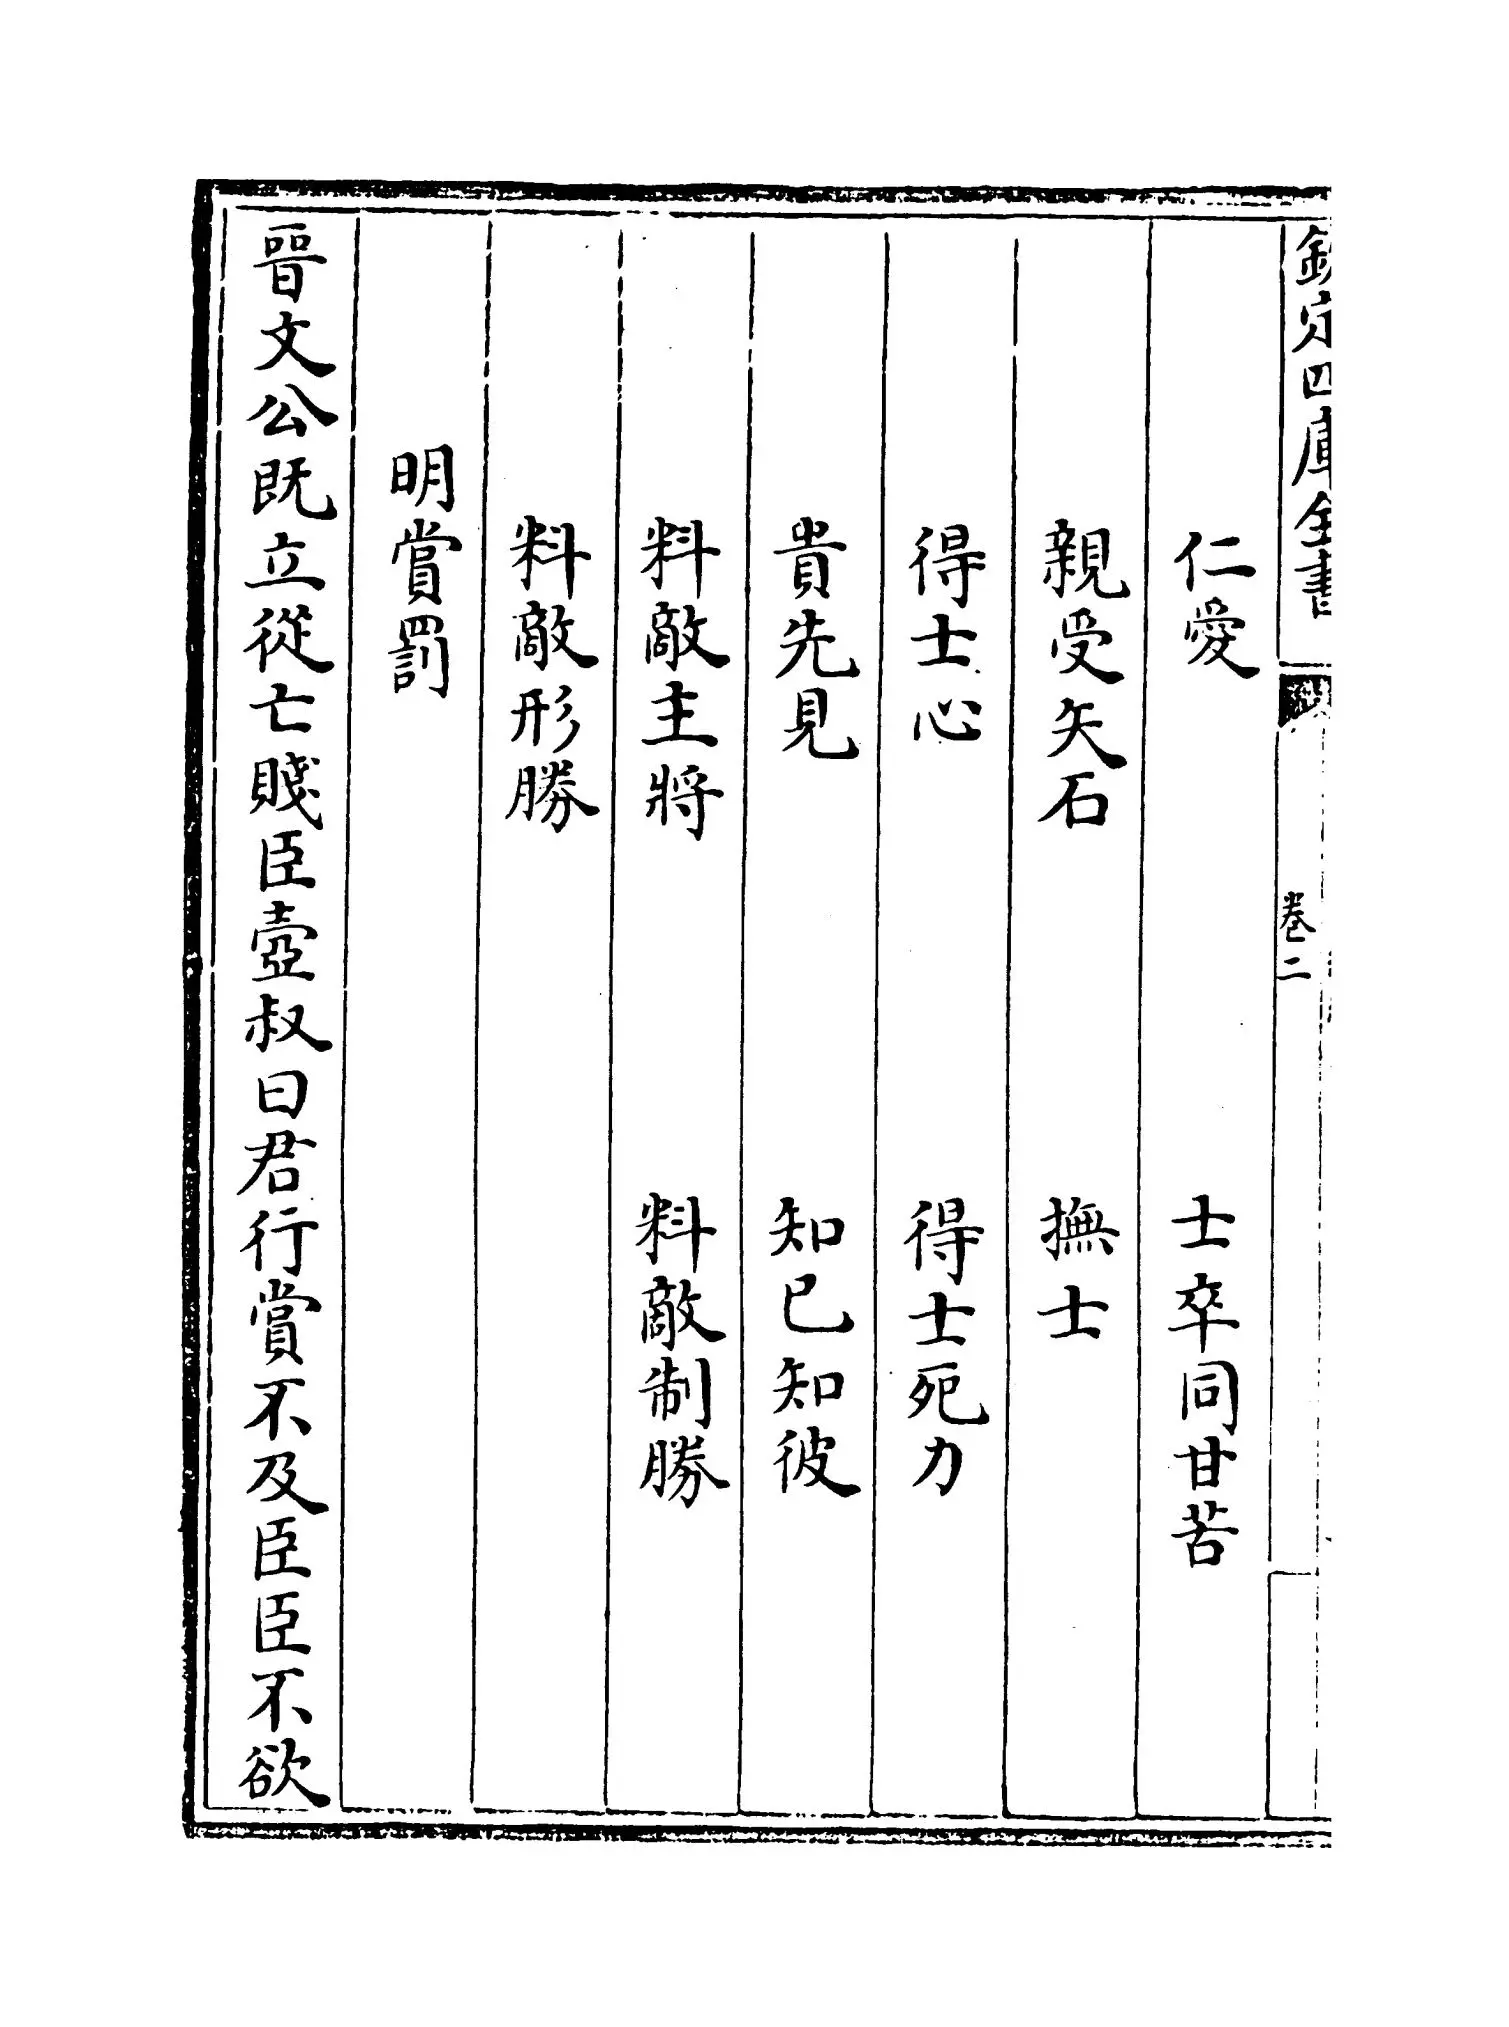 欽定四庫全書
卷二
仁愛　士卒同甘苦
親受矢石　撫士
得士心　得士死力
貴先見　知已知彼
料敵主將　料敵制勝
料敵形勝
明賞罰
晉文公既立從亡賤臣壺叔曰君行賞不及臣臣不欲